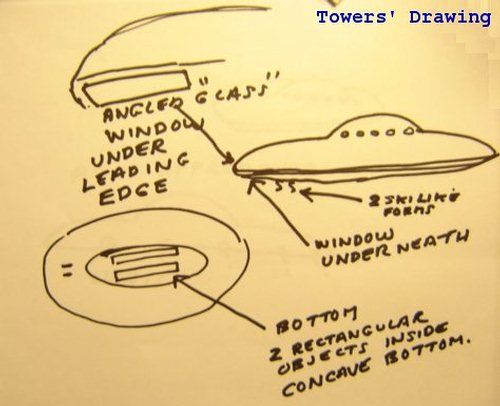 Towers' Drawing
ANGLED "GLASS"
WINDOW
UNDER
LEADING
EDGE
2 SKI LIKE
FORMS
WINDOW
UNDERNEATH
BOTTOM
2 RECTANGULAR
OBJECTS INSIDE
CONCAVE BOTTOM.